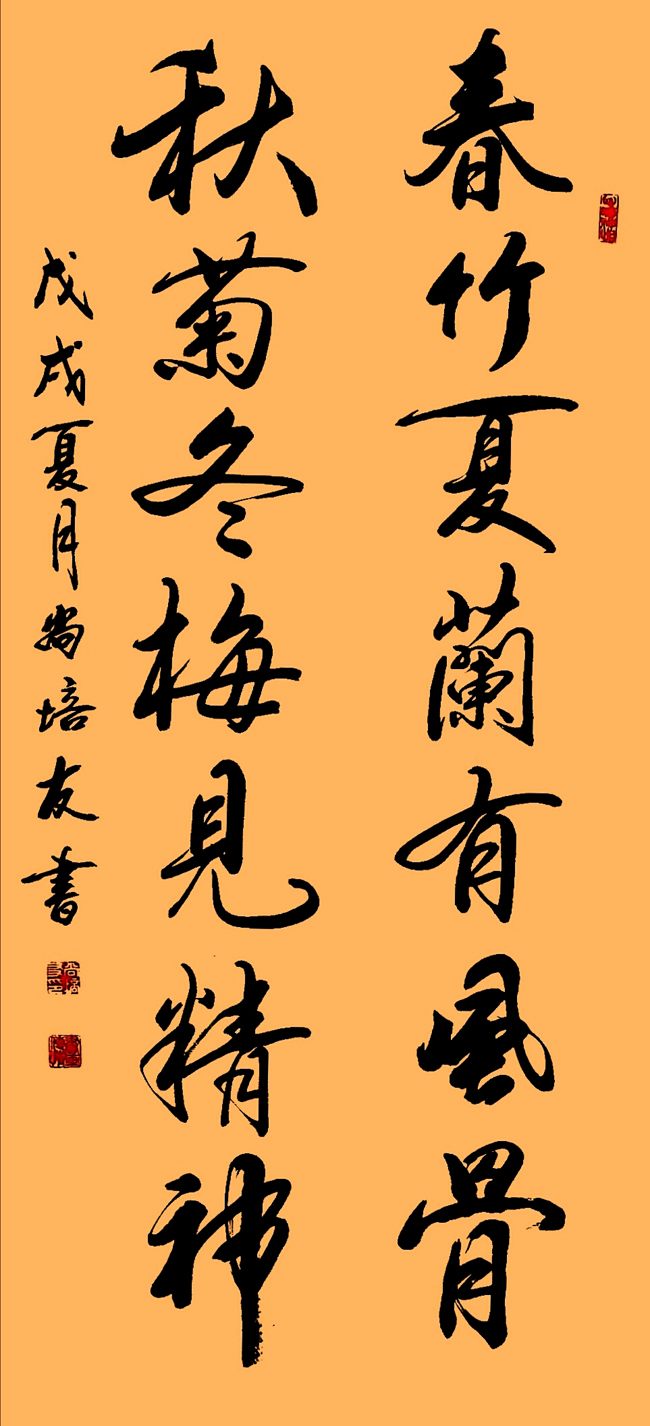 春竹夏蘭有風骨
秋菊冬梅見精神
戊戌夏月尚培友書